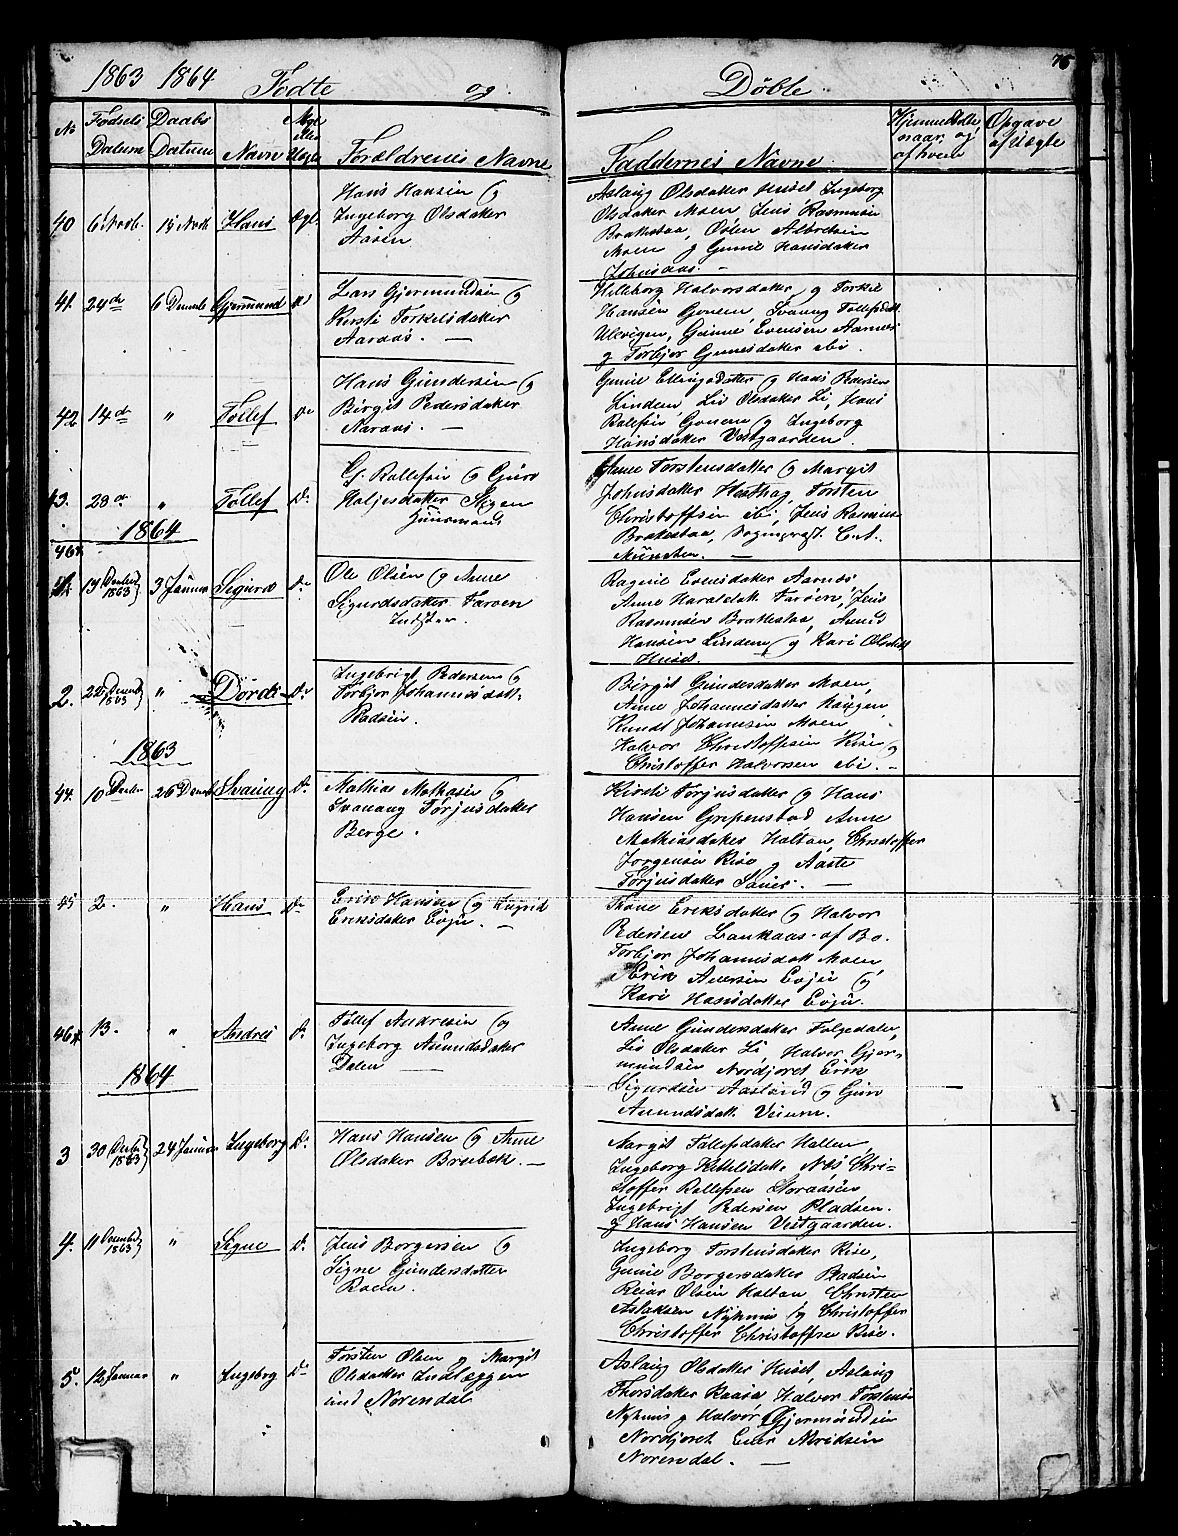 1863 1864 Fødte og Døbte 76
No Fødsels Datum Daabs Datum Navn Ægte eller Uægte Forældrenes Navne Faddernes Navne Hjemmedøbt naar og af hvem Opgave af Uægte
40 6 Novb. 15 Novb Hans Ægte
Hans Hansen og
Ingeborg Olsdatter
Aasen
Aslaug Olsdatter Huset Ingeborg
Olsdatter Moen Jens Rasmusen
Brakestaa, Albretsen
Moen og Gunil Hansdatter
Johnsaas. —
41. 24de 6 Decembr Gjermund do
Lars Gjermundsen og
Kirsti Torkelsdatter
Aaraas. —
Hilleborg Halvorsdatter og Torkil
Hansen Gonem, Svanug Tollefsdatt
Ulevigen, Gunil Evensen Aarnes
og Torbjør Gunesdatter ibi.
42 14de " Tollef do
Hans Gundersen og
Birgit Pedersdatter
Naraas. —
Gunil Ellingsdatter og Hans Pedersen
Linden, Liv Olsdatter Li, Hans
Rollefsen Gonem og Ingeborg
Hansdatter Vestgaarden.
43. 28de " Tollef Do
G. Rollefsen og Guro
Haljesdatter Stigen
Huusmand
Anne Torstensdatter og Margit
Johnsdatter Torsten
Christoffsen ibi, Jens Rasmus
Brakestaa, Sogneprest
Münster. —
1864
464
1. 19 Decbr 1863 3 Januar Sigurd Do
Ole Olsen og Anne
Sigurdsdatter Farven
Inderst
Ragnil Evensdatter Aarnes
Anne Haraldsdatt Farven, Jens
Rasmusen Brakestaa, Amund
Hansen Linden og Kari Olsdatt
Huset
2. 22 Decemb 1863 " Dorthe Do
Ingebrigt Pedersen og
Torbjør Johannesdatt
Pladsen.
Birgit Gundersdatter Moen,
Anne Johannesdatter Haugen
Knudt Johannesen Moen,
Halvor Christoffsen Rise og
Christoffer Halvorsen ibi. —
1863
44. 10 Decbr 26 Decemb Svanug Do
Mathias Mathisen og
Svanaug Torjusdatter
Berge.
Kirsti Torjusdatter og Hans
Hansen Grepenstad Anne
Mathiasdatter Holtan, Christoffer
Jorgensen Rise og Aaste
Torjusdatter Sanes. —
45 2. " Hans Do
Erik Hansen og Ingrid
Eriksdatter Evju. —
Thone Eriksdatter og Halvor
Pedersen Lankaas af Bø.
Torbjør Johannesdatt Moen
Erik Andersen Evju og
Kari Hansdatter Evju.
464 13. " Andres Do
Tollef Andresen og
Ingeborg Amundsdatter
Dalen —
Anne Gundersdatter Folgedalen,
Liv Olsdatter Li, Halvor Gjer-
mundsen Nordjoret Erik
Sigurdsen Aasland og Guro
Amundsdatt. Veium.
1864
3 30 Decbr 1863 24 Januar Ingeborg Do
Hans Hansen og Anne
Olsdatter Brubæk. —
Margit Tollefsdatter Hallen
Ingeborg Kittelsdatt. Næs Chri-
stoffer Rollefsen Storaasen
Ingebrigt Pedersen Pladsen.
og Hans Hansen Vestgaarden.
4. 11 Decembr 1863 " Signe Do
Jens Borgersen og
Signe Gundersdatter
Roen.
Ingeborg Torstensdatter Rise,
Gunil Borgersdatter Pladsen
Reiar Olsen Holtan Christen
Aslaksen Nyhuus og Christoffer
Christoffer Christoffsen Rise.
5. 12 Januar " Ingeborg Do
Torsten Olsen og Margit
Olsdatter Indlæggen
und Norendal
Aslaug Olsdatter Huset, Aslaug
Thorsdatter Raasa Halvor Torstensen
Nyhuus og Halvor Gjermundsen
Nordjoret Eiler Amundsen
Norendal. —